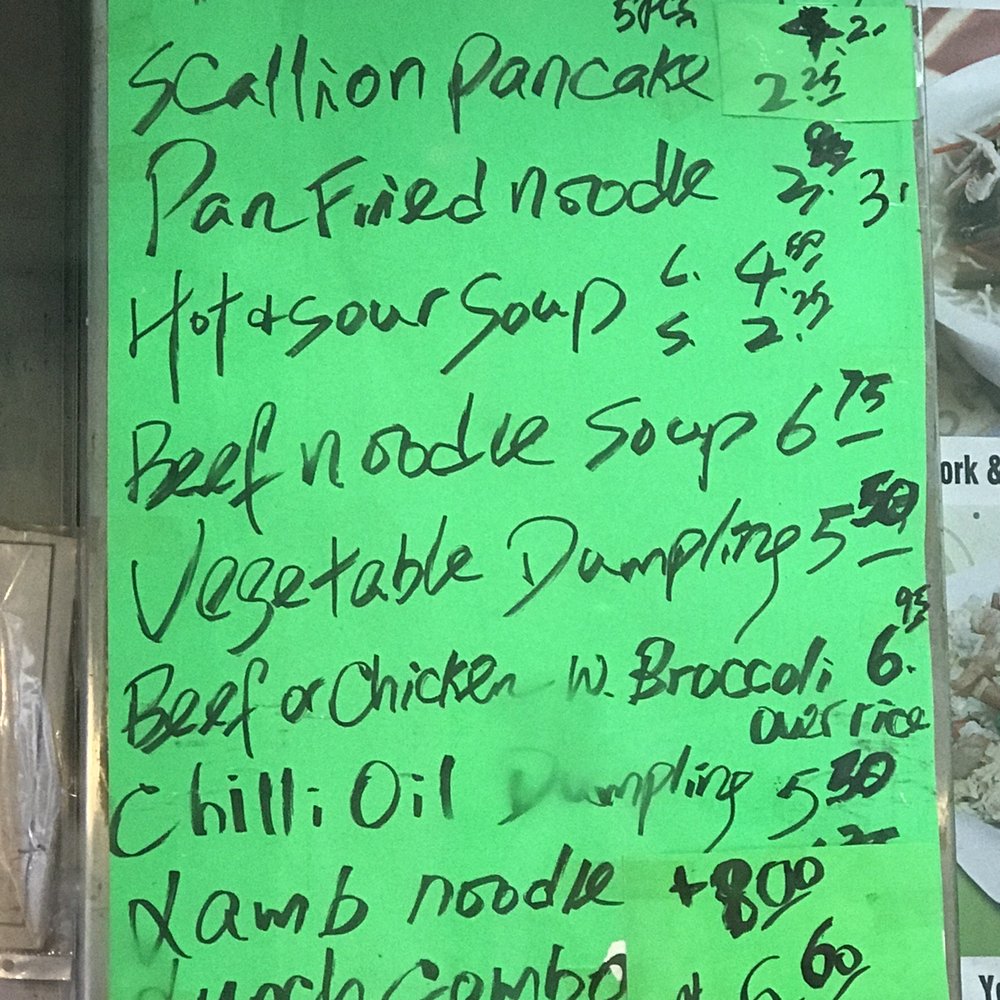 5 PCS 2.
Scallion Pancake 2.25
Pan Fried noodle 3.
Hot & Sour Soup L. 4.50
S. 2.25
Beef noodle Soup 6 75
Vegetable Dumpling 5 50
Beef or Chicken w. Broccoli 6. 95
over rice
Chilli Oil Dumpling 5 50
Lamb noodle 8 00
Lunch combo 6 60
ork &